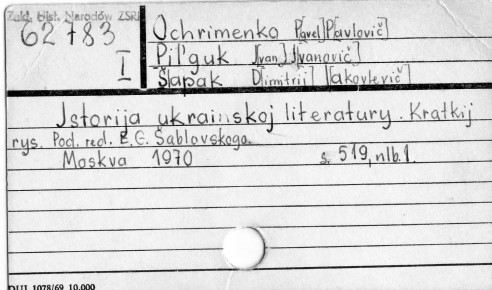 Zakł. Hist. Narodów ZSRR
62783
I
Ochrimenko P[avel] P[avlovič]
Pil'guk I[van] I[vanovič]
Šlapak D[imitrij] [Jakovlevič]
Istorija ukrainskoj literatury. Kratkij
rys. Pod. red. E. S. Šablovskogo.
Moskva 1970 s. 519, nlb. 1.
DUJ 1078/69 10.000